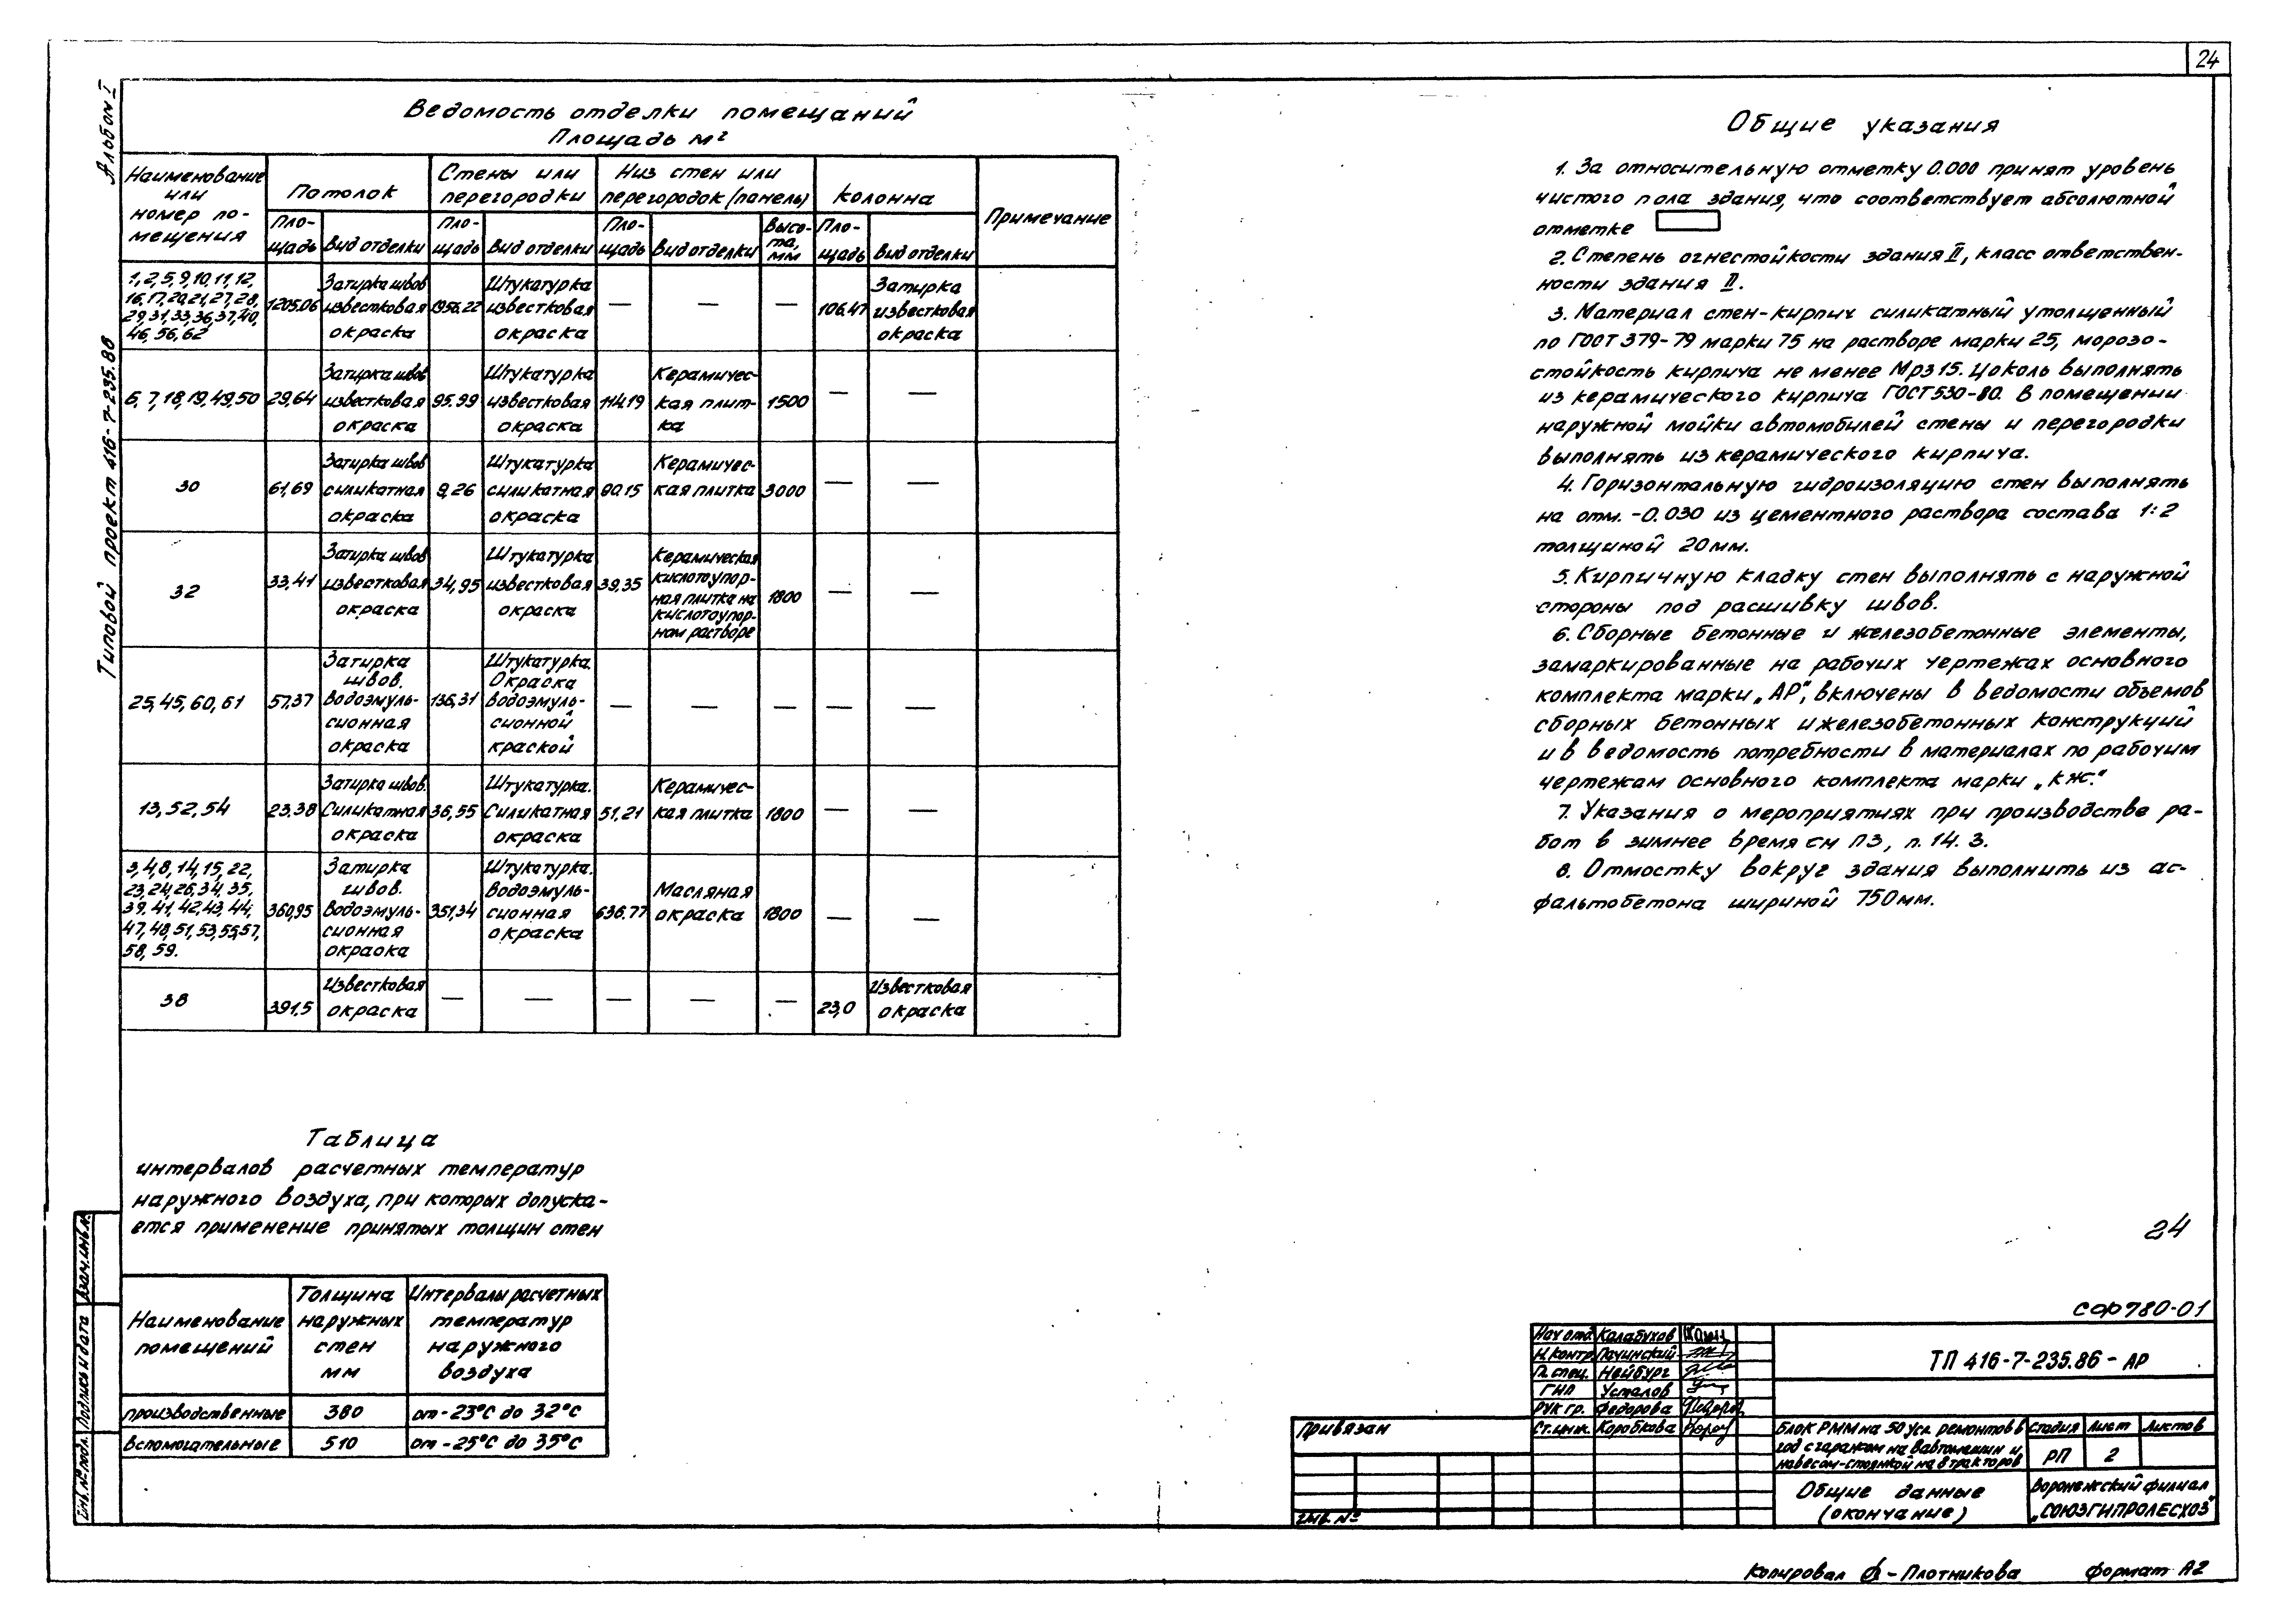 24
Альбом I
Типовой проект 416-7-235.86
Ведомость отделки помещаний
Площадь м²
Наименование или номер по-мещения
Потолок
Стены или перегородки
Низ стен или перегородок (панель)
Колонна
Примечание
Пло-щадь
Вид отделки
Пло-щадь
Вид отделки
Пло-щадь
Вид отделки
Высо-та, мм
Пло-щадь
Вид отделки
1, 2, 5, 9, 10, 11, 12, 16, 17, 20, 21, 27, 28, 29, 31, 33, 36, 37, 40, 46, 56, 62
1205.06
Затирка швов известковая окраска
1956.22
Штукатурка известковая окраска
—
—
—
106.47
Затирка известковая окраска
6, 7, 18, 19, 49, 50
29,64
Затирка швов известковая окраска
95.99
Штукатурка известковая окраска
114.19
Керамичес-кая плит-ка
1500
—
—
30
61,69
Затирка швов силикатная окраска
9,26
Штукатурка силикатная окраска
90.15
Керамичес-кая плитка
3000
—
—
32
33,41
Затирка швов известковая окраска
34,95
Штукатурка известковая окраска
39,35
Керамическая кислотоупор-ная плитка на кислотоупор-ном растворе
1800
—
—
25, 45, 60, 61
57,37
Затирка швов. Водоэмуль-сионная окраска
136,31
Штукатурка. Окраска водоэмуль-сионной краской
—
—
—
—
—
13, 52, 54
23.38
Затирка швов. Силикатная окраска
36,55
Штукатурка. Силикатная окраска
51,21
Керамичес-кая плитка
1800
—
—
3, 4, 8, 14, 15, 22, 23, 24, 26, 34, 35, 39, 41, 42, 43, 44, 47, 48, 51, 53, 55, 57, 58, 59.
360,95
Затирка швов. Водоэмуль-сионная окраока
351,34
Штукатурка. Водоэмуль-сионная окраска
636.77
Масляная окраска
1800
—
—
38
391,5
Известковая окраска
—
—
—
—
—
23,0
Известковая окраска
Таблица
интервалов расчетных температур
наружного воздуха, при которых допуска-
ется применение принятых толщин стен
Наименование помещений
Толщина наружных стен мм
Интервалы расчетных температур наружного воздуха
производственные
380
от -23°С до 32°С
вспомогательные
510
от -25°С до 35°С
Общие указания
1. За относительную отметку 0.000 принят уровень
чистого пола здания, что соответствует абсолютной
отметке
2. Степень огнестойкости здания II, класс ответствен-
ности здания II.
3. Материал стен-кирпич силикатный утолщенный
по ГОСТ 379-79 марки 75 на растворе марки 25, морозо-
стойкость кирпича не менее Мрз 15. Цоколь выполнять
из керамического кирпича ГОСТ 530-80. В помещении
наружной мойки автомобилей стены и перегородки
выполнять из керамического кирпича.
4. Горизонтальную гидроизоляцию стен выполнять
на отм. -0.030 из цементного раствора состава 1:2
толщиной 20мм.
5. Кирпичную кладку стен выполнять с наружной
стороны под расшивку швов.
6. Сборные бетонные и железобетонные элементы,
замаркированные на рабочих чертежах основного
комплекта марки „АР", включены в ведомости объемов
сборных бетонных и железобетонных конструкций
и в ведомость потребности в материалах по рабочим
чертежам основного комплекта марки „КЖ".
7. Указания о мероприятиях при производстве ра-
бот в зимнее время см ПЗ, п. 14. 3.
8. Отмостку вокруг здания выполнить из ас-
фальтобетона шириной 750мм.
24
СФ780-01
Нач отд. Калабухов
Н. Контр. Пачинский
Гл. спец. Нейбург
ГИП Усталов
Рук гр. Федорова
Ст. инж. Коробкова
ТП 416-7-235.86 - АР
Блок РММ на 50 усл. ремонтов в
год с гаражом на 8 автомашин и
навесом-стоянкой на 8 тракторов
Стадия Лист Листов
РП 2
Общие данные
(окончание)
Воронежский филиал
„СОЮЗГИПРОЛЕСХОЗ"
Привязан
Инв. №
Взам. инв. №
Подпись и дата
Инв. № подл.
Копировал - Плотникова
Формат А2